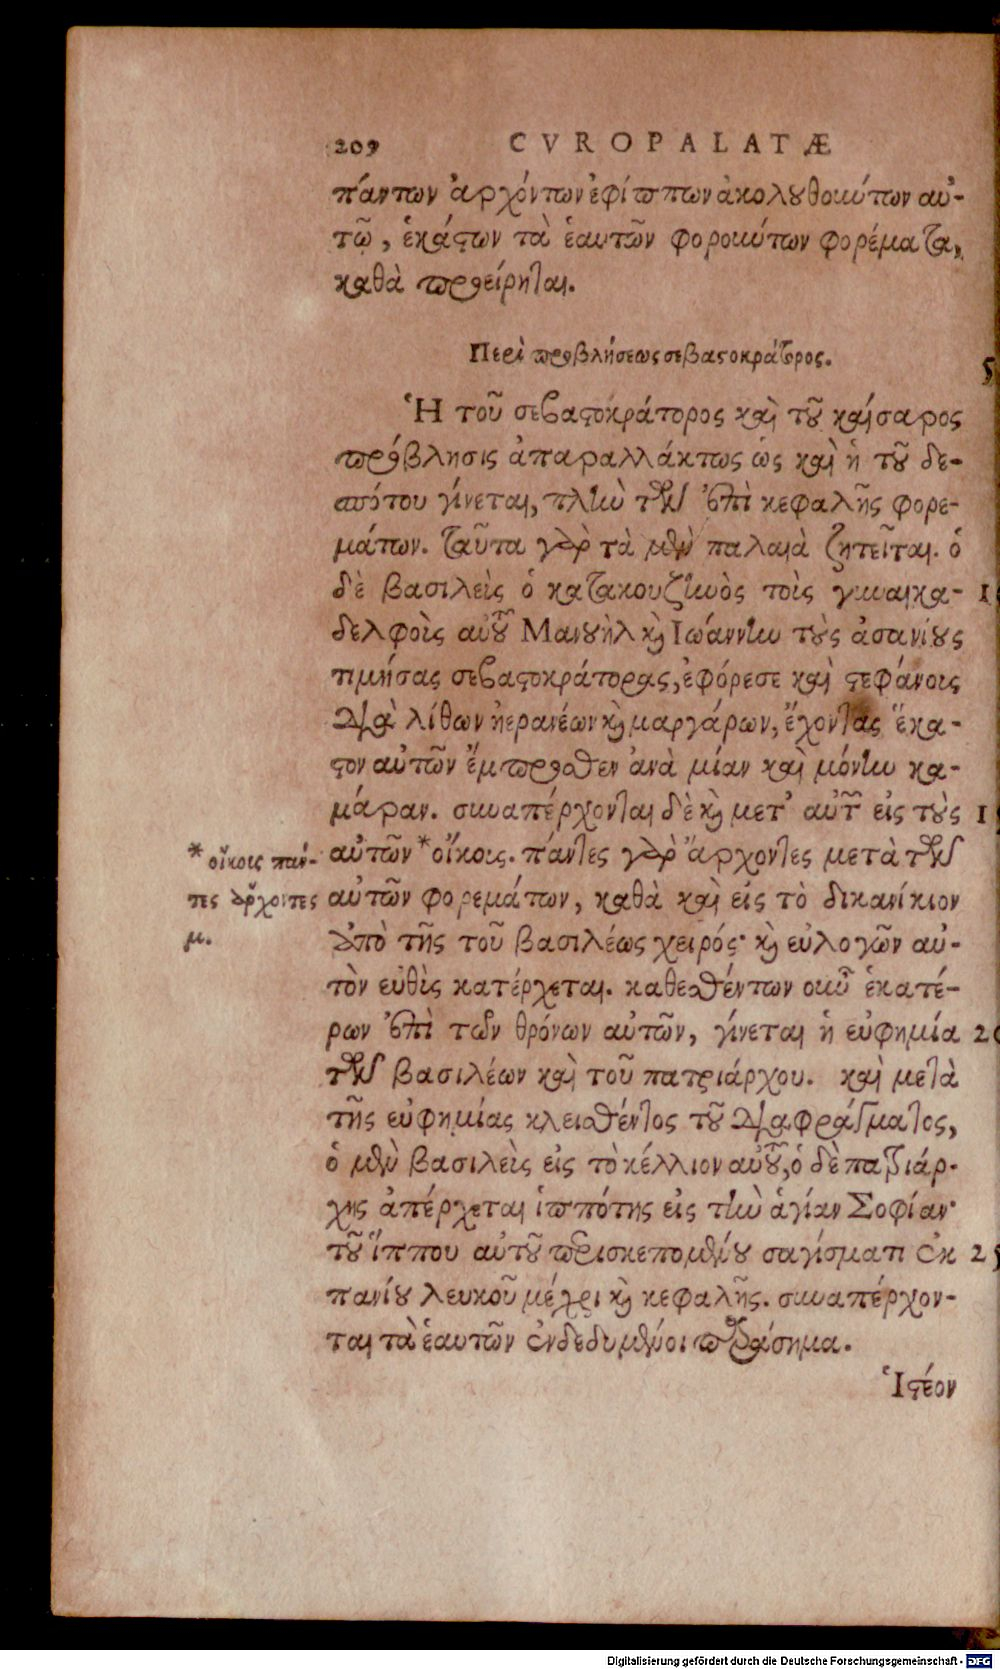 209 CVROPALATÆ
πάντων ἀρχόντων ἐφίππων ἀκολουθούντων αὐ-
τῷ, ἑκάστων τὰ ἑαυτῶν φορούντων φορέματα,
καθὰ προείρηται.
Περὶ προβλήσεως σεβαστοκράτορος.
5
Ἡ τοῦ σεβαστοκράτορος καὶ τοῦ καίσαρος
πρόβλησις ἀπαραλλάκτως ὡς καὶ ἡ τοῦ δε-
σπότου γίνεται, πλὴν τῶν ἐπὶ κεφαλῆς φορε-
μάτων. ταῦτα γὰρ τὰ μὲν παλαιὰ ζητεῖται. ὁ
δὲ βασιλεὺς ὁ κατακουζηνὸς τοὶς γυναικα-
δελφοὶς αὐτοῦ Μανουὴλ καὶ Ἰωάννην τοὺς ἀσανίους
τιμήσας σεβαστοκράτορας, ἐφόρεσε καὶ στεφάνοις
διὰ λίθων ἠερανέων καὶ μαργάρων, ἔχοντας ἕκα-
στον αὐτῶν ἔμπροσθεν ἀνὰ μίαν καὶ μόνην κα-
μάραν. συναπέρχονται δὲ καὶ μετ' αὐτῶν εἰς τοὺς
αὐτῶν * οἴκοις. πάντες γὰρ ἄρχοντες μετὰ τῶν
* οἴκοις πάν-
τες ἄρχοντες
μ.
αὐτῶν φορεμάτων, καθὰ καὶ εἰς τὸ δικανίκιον
ἀπὸ τῆς τοῦ βασιλέως χειρός· καὶ εὐλογῶν αὐ-
τὸν εὐθὶς κατέρχεται. καθεσθέντων οὖν ἑκατέ-
ρων ἐπὶ τῶν θρόνων αὐτῶν, γίνεται ἡ εὐφημία
τῶν βασιλέων καὶ τοῦ πατριάρχου. καὶ μετὰ
τῆς εὐφημίας κλεισθέντος τοῦ διαφράγματος,
ὁ μὲν βασιλεὶς εἰς τὸ κέλλιον αὐτοῦ, ὁ δὲ πατριάρ-
χης ἀπέρχεται ἱππότης εἰς τὴν ἁγίαν Σοφίαν·
τοῦ ἵππου αὐτοῦ περισκεπομένου σαγίσματι ἐκ
πανίου λευκοῦ μέχρι καὶ κεφαλῆς. συναπέρχον-
ται τὰ ἑαυτῶν ἐνδεδυμένοι παράσημα.
Ἰστέον
Digitalisierung gefördert durch die Deutsche Forschungsgemeinschaft - DFG